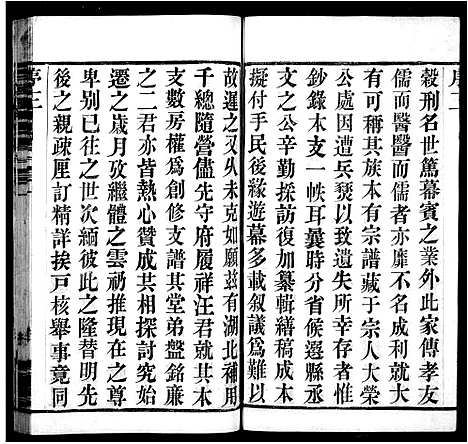 序二
穀刑名世篤幕賓之業外此家傳孝友
儒而醫醫而儒者亦靡不成名成利就大
有可稱其族有宗譜藏于宗人大榮
公處因遭兵燹以致遺失所存者惟
鈔錄木支一帙耳曩時分省候選縣丞
文之公辛勤採訪復加纂輯繕稿成本
擬付手民後緣遊幕多載叙議爲難以
故遲之又久未克如願茲有湖北補用
千總隨營儘先守府履祥汪君就其本
支數房權爲創修其堂弟盤銘廉
之二君亦皆熱心贊成共相中止推原世系播
遷之歲月攷繼體之雲礽推現在之尊
卑别已往之世次緬彼此之隆替明先
後之親疎厘訂精詳挨戸核舉事竟同
序三